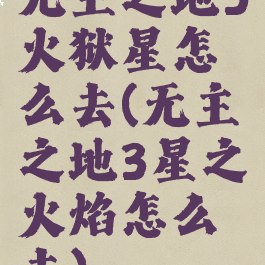 无主之地3
火狱星怎
么去(无主
之地3星之
火焰怎么
去)